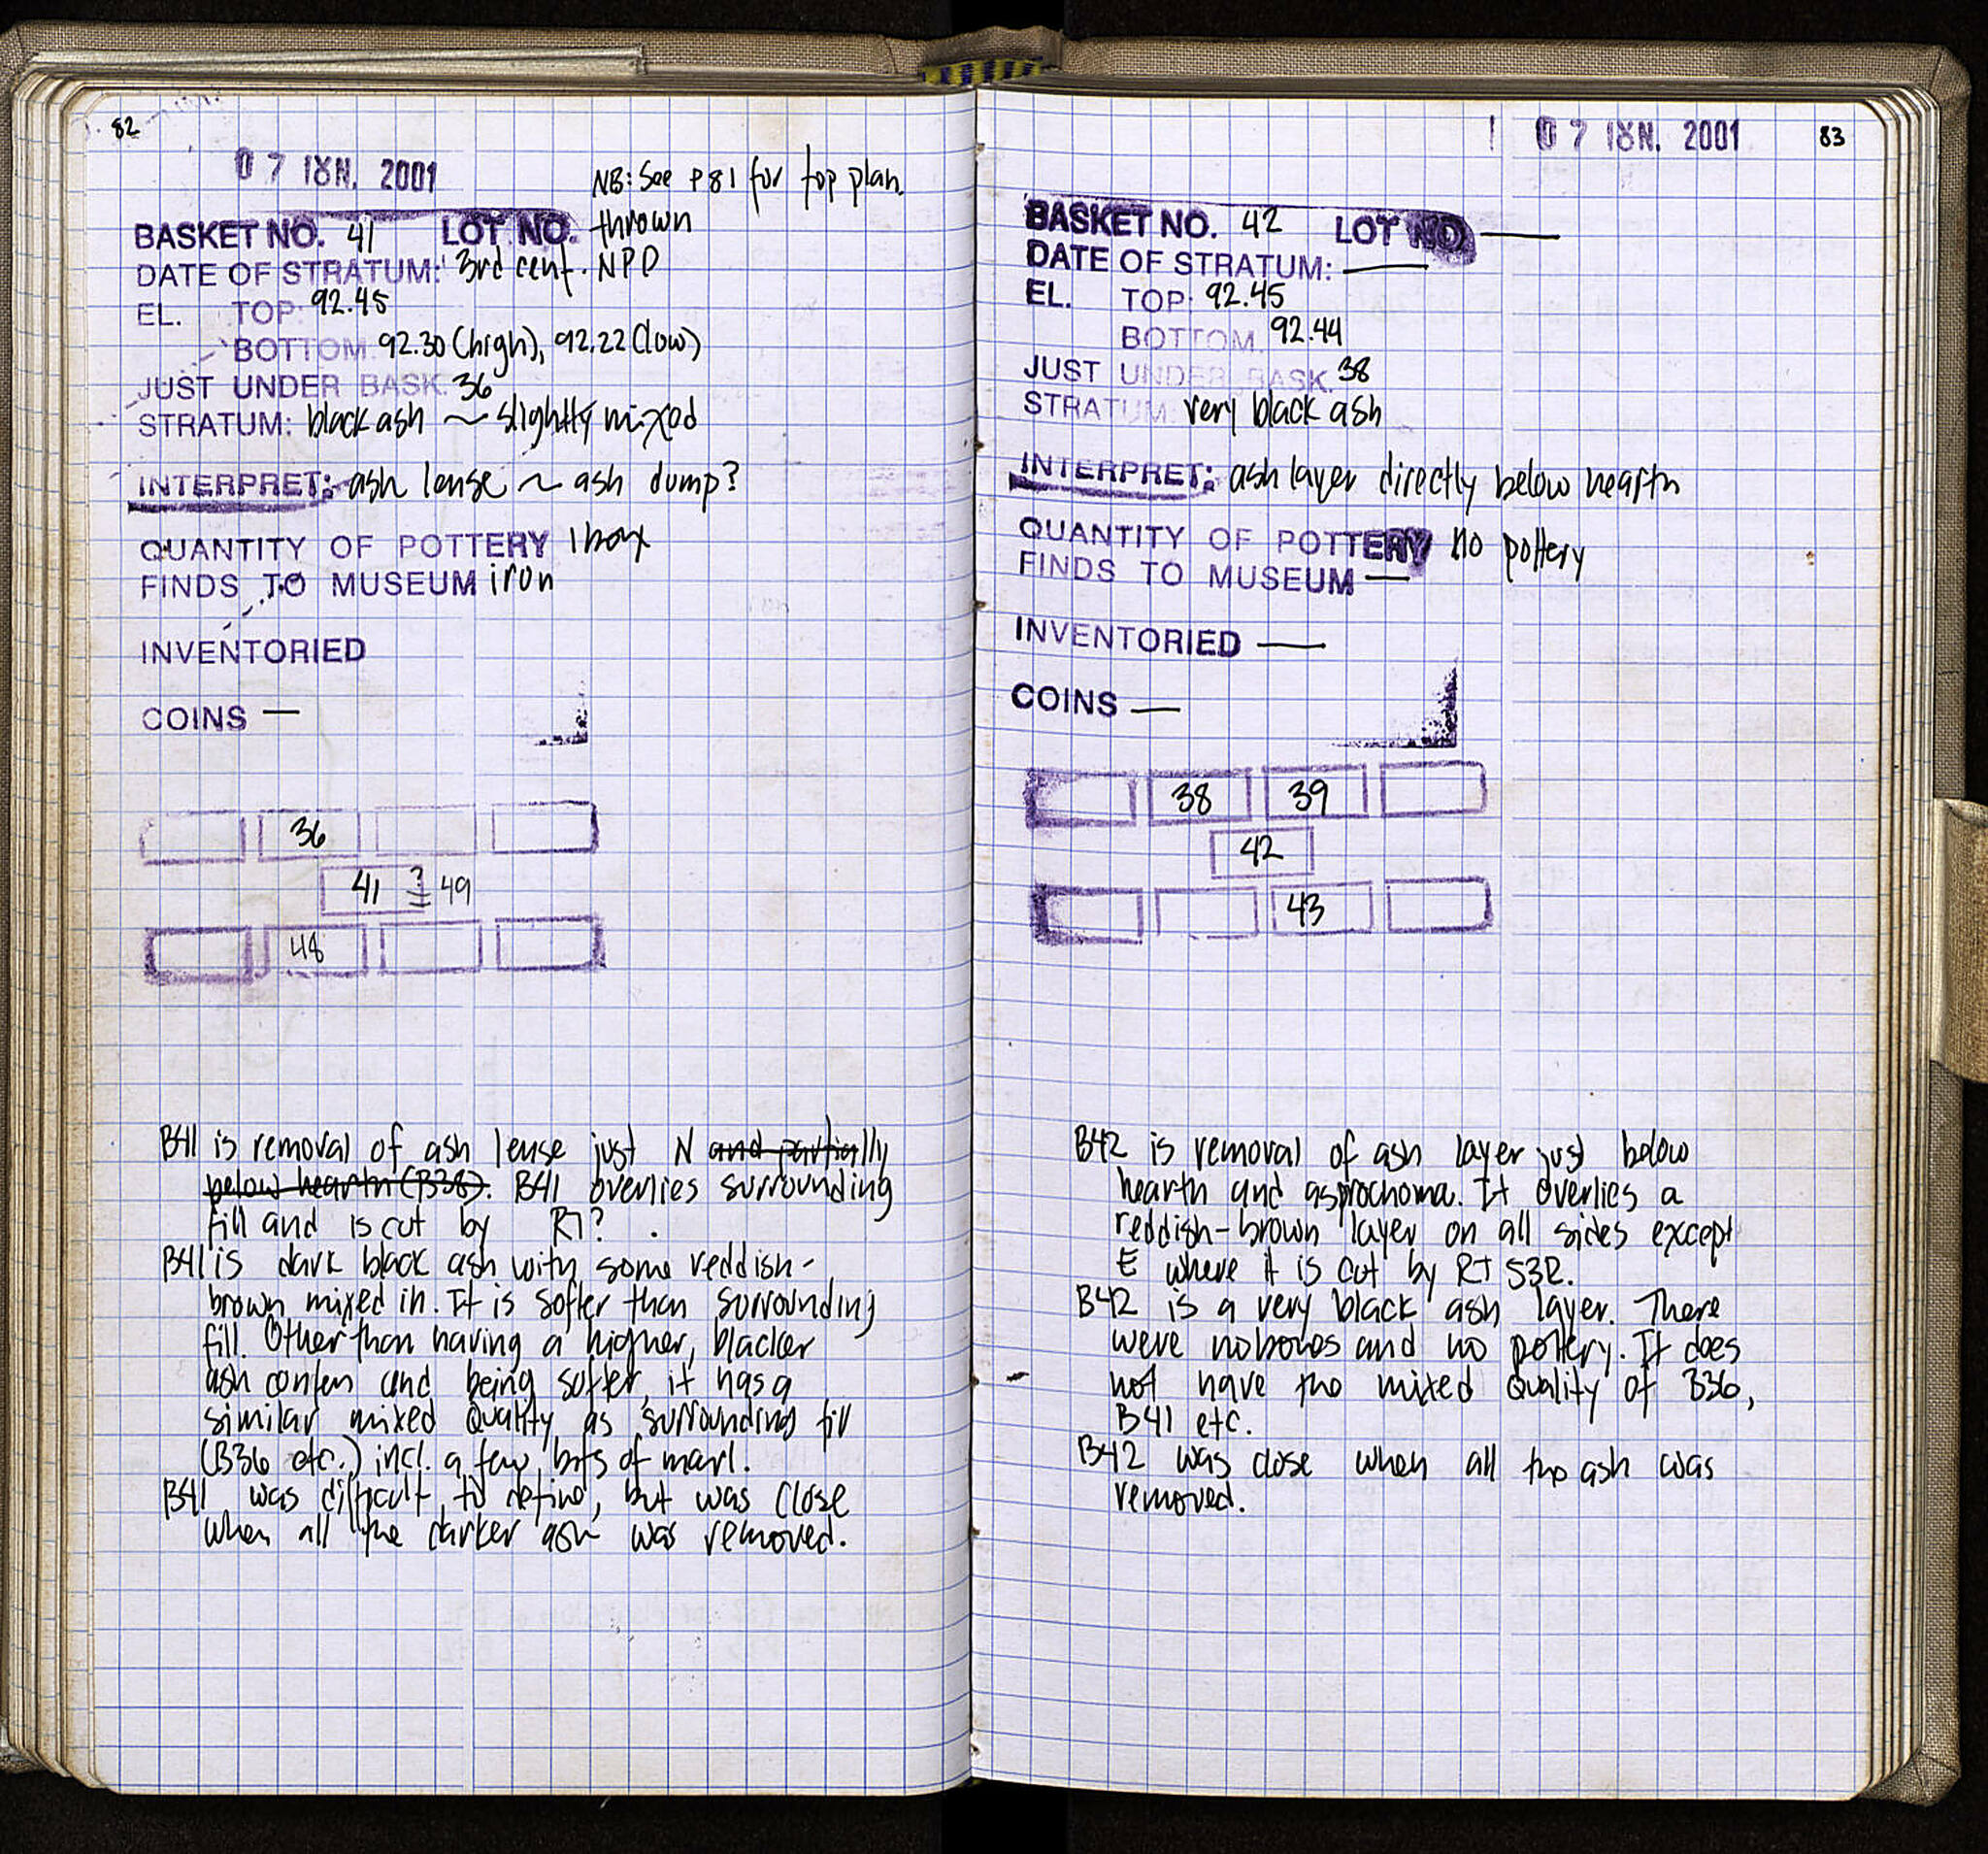 82
0 7 ΙΟΥΝ. 2001
NB: See p81 for top plan.
BASKET NO. 41 LOT NO. thrown
DATE OF STRATUM: 3rd cent. NPD
EL. TOP: 92.45
BOTTOM: 92.30 (high), 92.22 (low)
JUST UNDER BASK. 36
STRATUM: black ash ~ slightly mixed
INTERPRET: ash lense ~ ash dump?
QUANTITY OF POTTERY 1 box
FINDS TO MUSEUM iron
INVENTORIED
COINS —
36
41 ?= 49
48
B41 is removal of ash lense just N and partially
below hearth (B38). B41 overlies surrounding
fill and is cut by R7? .
B41 is dark black ash with some reddish-
brown mixed in. It is softer than surrounding
fill. Other than having a higher, blacker
ash conten and being softer, it has a
similar mixed quality as surrounding fill
(B36 etc.) incl. a few bits of marl.
B41 was difficult to define, but was close
when all the darker ash was removed.
0 7 ΙΟΥΝ. 2001
83
BASKET NO. 42 LOT NO. —
DATE OF STRATUM: —
EL. TOP: 92.45
BOTTOM. 92.44
JUST UNDER BASK. 38
STRATUM very black ash
INTERPRET: ash layer directly below hearth
QUANTITY OF POTTERY no pottery
FINDS TO MUSEUM —
INVENTORIED —
COINS —
38 39
42
43
B42 is removal of ash layer just below
hearth and asprochoma. It overlies a
reddish-brown layer on all sides except
E where it is cut by RT 532.
B42 is a very black ash layer. There
were no bones and no pottery. It does
not have the mixed quality of B36,
B41 etc.
B42 was close when all the ash was
removed.